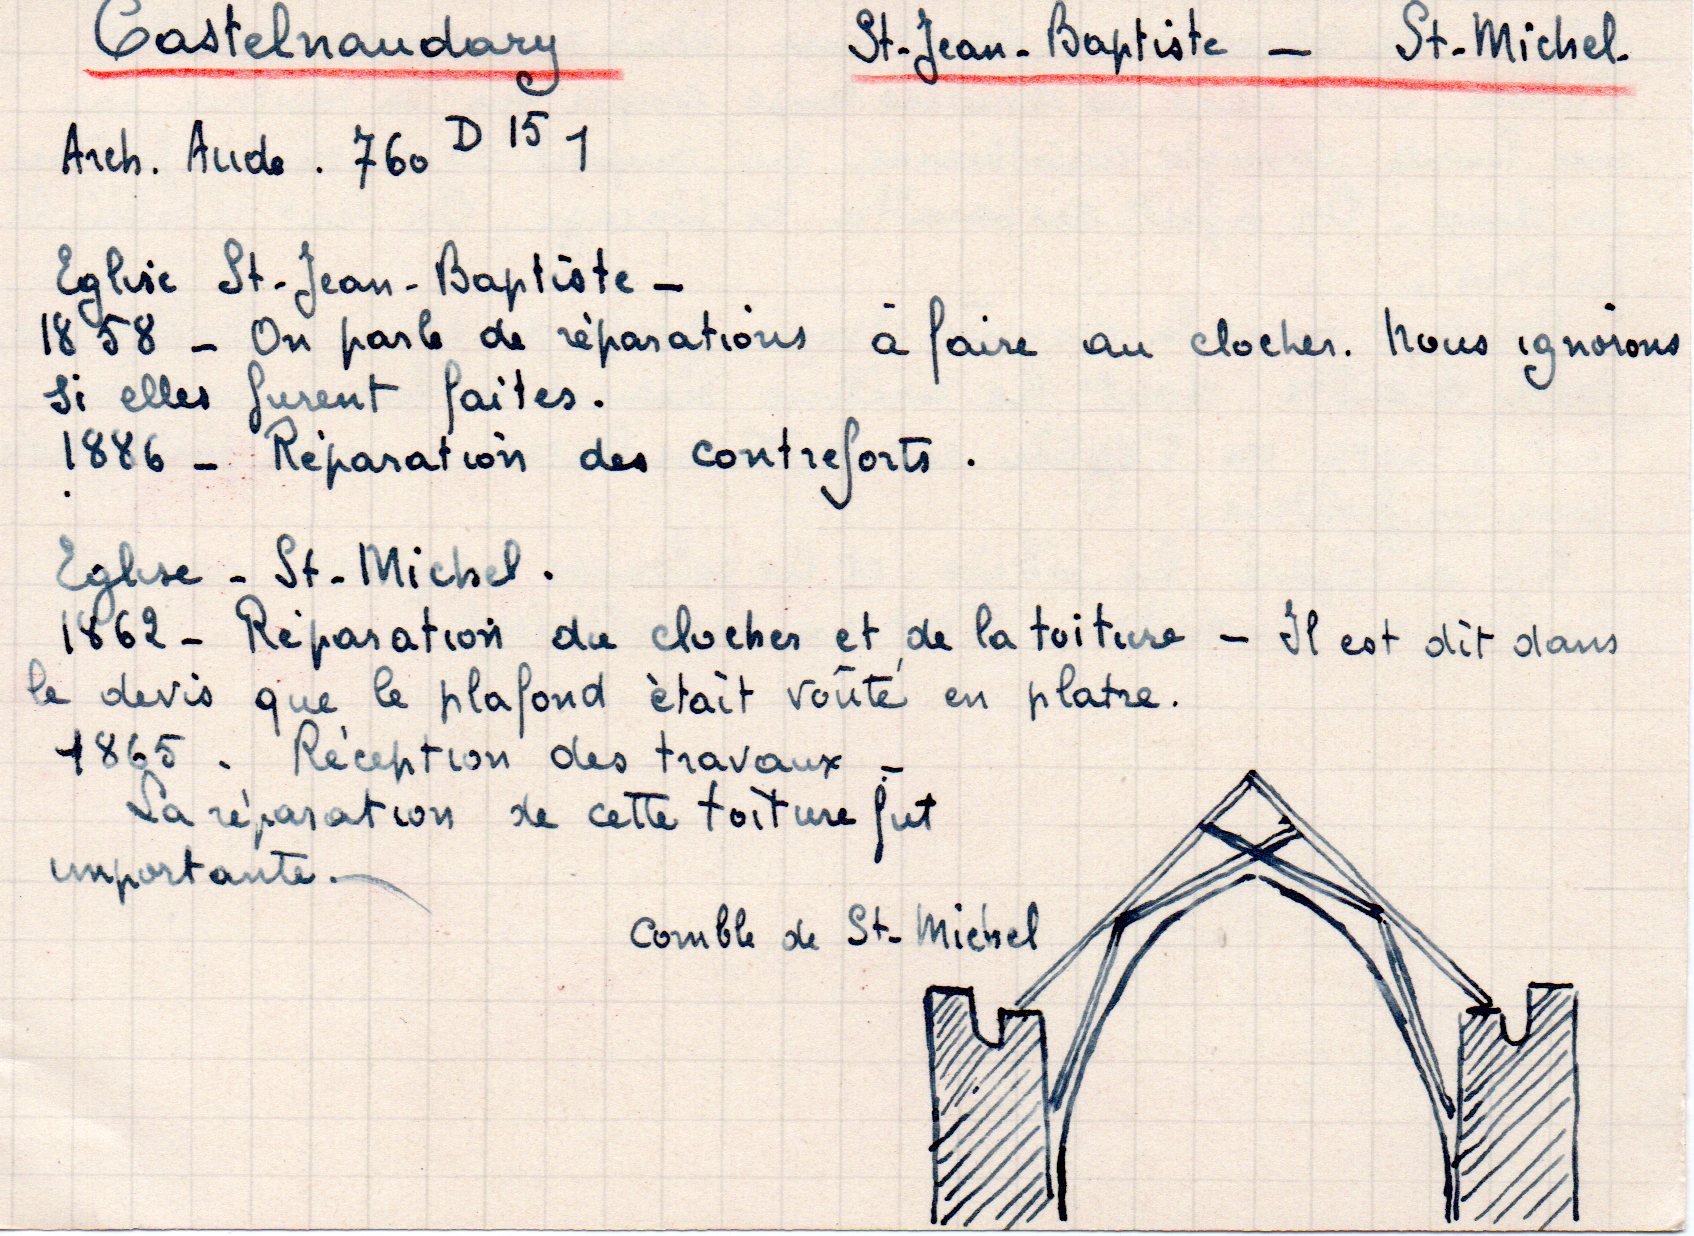 Castelnaudary St-Jean-Baptiste - St-Michel.
Arch. Aude. 760 D 15 1
Eglise St-Jean-Baptiste -
1858 - On parle de réparations à faire au clocher. Nous ignorons
si elles furent faites.
1886 - Réparation des contreforts.
Eglise - St-Michel.
1862 - Réparation du clocher et de la toiture - Il est dit dans
le devis que le plafond était voûté en platre.
1865. Réception des travaux -
La réparation de cette toiture fut
importante.
comble de St-Michel